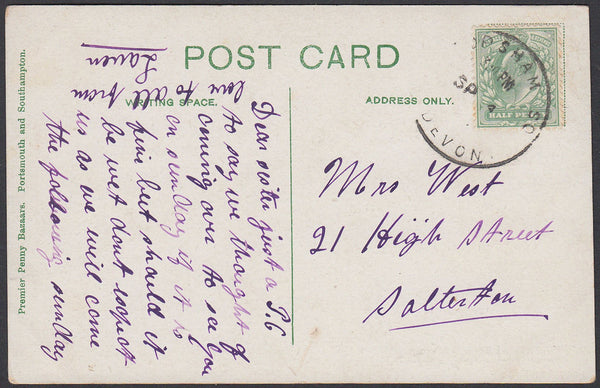 POST CARD
WRITING SPACE.
ADDRESS ONLY.
Premier Penny Bazaars. Portsmouth and Southampton.
Dear sister just a P.C
to say we thought of
coming over to see you
on sunday if it is
fine but should it
be wet dont expect
us as we will come
the following sunday
love to all from
Mrs West
21 High Street
Salterton
HALF PE
PM
SP 4
DEVON